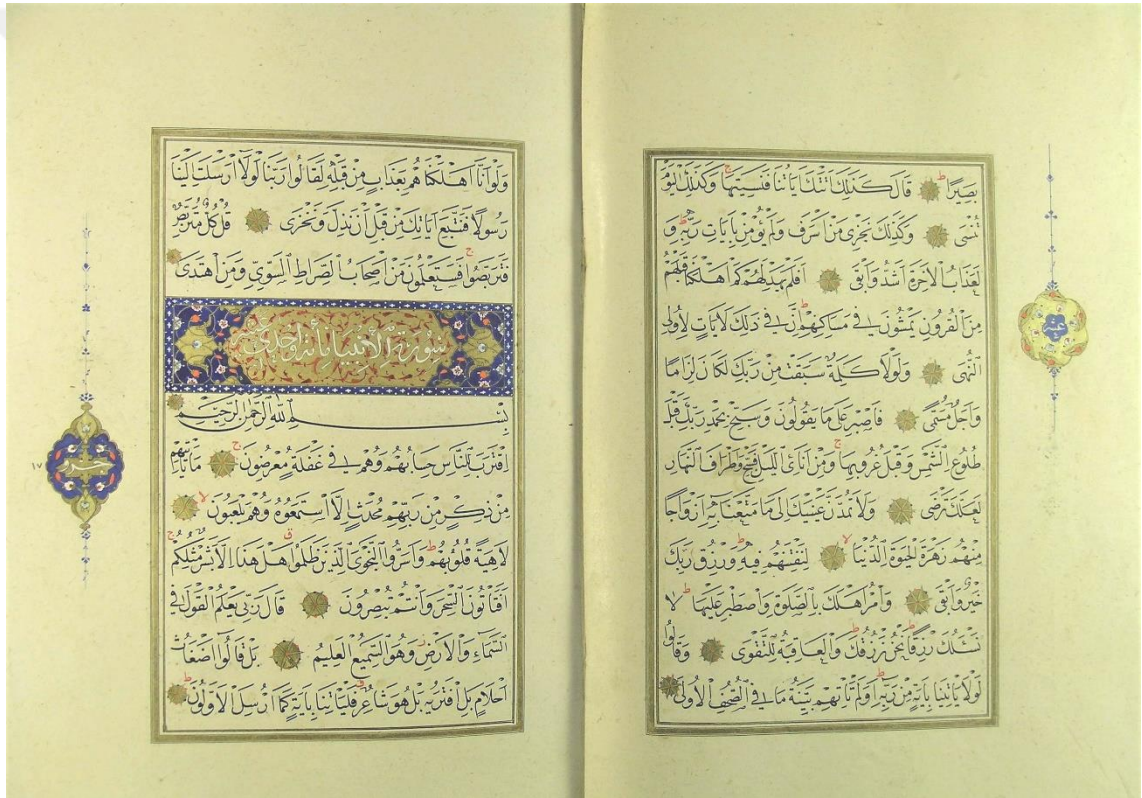 بَصِيرًا قَالَ كَذٰلِكَ اَتَتْكَ اٰيَاتُنَا فَنَسِيتَهَا ج وَكَذٰلِكَ الْيَوْمَ
تُنْسٰى وَكَذٰلِكَ نَجْزِى مَنْ اَسْرَفَ وَلَمْ يُؤْمِنْ بِاٰيَاتِ رَبِّهِ ط وَ
لَعَذَابُ الْاٰخِرَةِ اَشَدُّ وَاَبْقٰى اَفَلَمْ يَهْدِ لَهُمْ كَمْ اَهْلَكْنَا قَبْلَهُمْ
مِنَ الْقُرُونِ يَمْشُونَ فِى مَسَاكِنِهِمْ ط اِنَّ فِى ذٰلِكَ لَاٰيَاتٍ لِاُولِى
النُّهٰى وَلَوْلَا كَلِمَةٌ سَبَقَتْ مِنْ رَبِّكَ لَكَانَ لِزَامًا
وَاَجَلٌ مُسَمًّى فَاصْبِرْ عَلٰى مَا يَقُولُونَ وَسَبِّحْ بِحَمْدِ رَبِّكَ قَبْلَ
طُلُوعِ الشَّمْسِ وَقَبْلَ غُرُوبِهَا ج وَمِنْ اٰنَائِ الَّيْلِ فَسَبِّحْ وَاَطْرَافَ النَّهَارِ
لَعَلَّكَ تَرْضٰى وَلَا تَمُدَّنَّ عَيْنَيْكَ اِلٰى مَا مَتَّعْنَا بِهِ اَزْوَاجًا
مِنْهُمْ زَهْرَةَ الْحَيٰوةِ الدُّنْيَا لا لِنَفْتِنَهُمْ فِيهِ ط وَرِزْقُ رَبِّكَ
خَيْرٌ وَاَبْقٰى وَأْمُرْ اَهْلَكَ بِالصَّلٰوةِ وَاصْطَبِرْ عَلَيْهَا ط لَا
نَسْئَلُكَ رِزْقًا ط نَحْنُ نَرْزُقُكَ ط وَالْعَاقِبَةُ لِلتَّقْوٰى وَقَالُوا
لَوْلَا يَاْتِينَا بِاٰيَةٍ مِنْ رَبِّهِ ط اَوَلَمْ تَاْتِهِمْ بَيِّنَةُ مَا فِى الصُّحُفِ الْاُولٰى
عشر
وَلَوْ اَنَّا اَهْلَكْنَاهُمْ بِعَذَابٍ مِنْ قَبْلِهِ لَقَالُوا رَبَّنَا لَوْلَا اَرْسَلْتَ اِلَيْنَا
رَسُولًا فَنَتَّبِعَ اٰيَاتِكَ مِنْ قَبْلِ اَنْ نَذِلَّ وَنَخْزٰى قُلْ كُلٌّ مُتَرَبِّصٌ
فَتَرَبَّصُوا ج فَسَتَعْلَمُونَ مَنْ اَصْحَابُ الصِّرَاطِ السَّوِىِّ وَمَنِ اهْتَدٰى
سورة الأنبياء مائة واحدى عشر
بِسْمِ اللّٰهِ الرَّحْمٰنِ الرَّحِيمِ
اِقْتَرَبَ لِلنَّاسِ حِسَابُهُمْ وَهُمْ فِى غَفْلَةٍ مُعْرِضُونَ ج مَا يَاْتِيهِمْ
مِنْ ذِكْرٍ مِنْ رَبِّهِمْ مُحْدَثٍ اِلَّا اسْتَمَعُوهُ وَهُمْ يَلْعَبُونَ لا
لَاهِيَةً قُلُوبُهُمْ ط وَاَسَرُّوا النَّجْوَى الَّذِينَ ظَلَمُوا ق هَلْ هٰذَا اِلَّا بَشَرٌ مِثْلُكُمْ ج
اَفَتَاْتُونَ السِّحْرَ وَاَنْتُمْ تُبْصِرُونَ قَالَ رَبِّى يَعْلَمُ الْقَوْلَ فِى
السَّمَاءِ وَالْاَرْضِ وَهُوَ السَّمِيعُ الْعَلِيمُ بَلْ قَالُوا اَضْغَاثُ
اَحْلَامٍ بَلِ افْتَرٰيهُ بَلْ هُوَ شَاعِرٌ فَلْيَاْتِنَا بِاٰيَةٍ كَمَا اُرْسِلَ الْاَوَّلُونَ
جزو
١٧